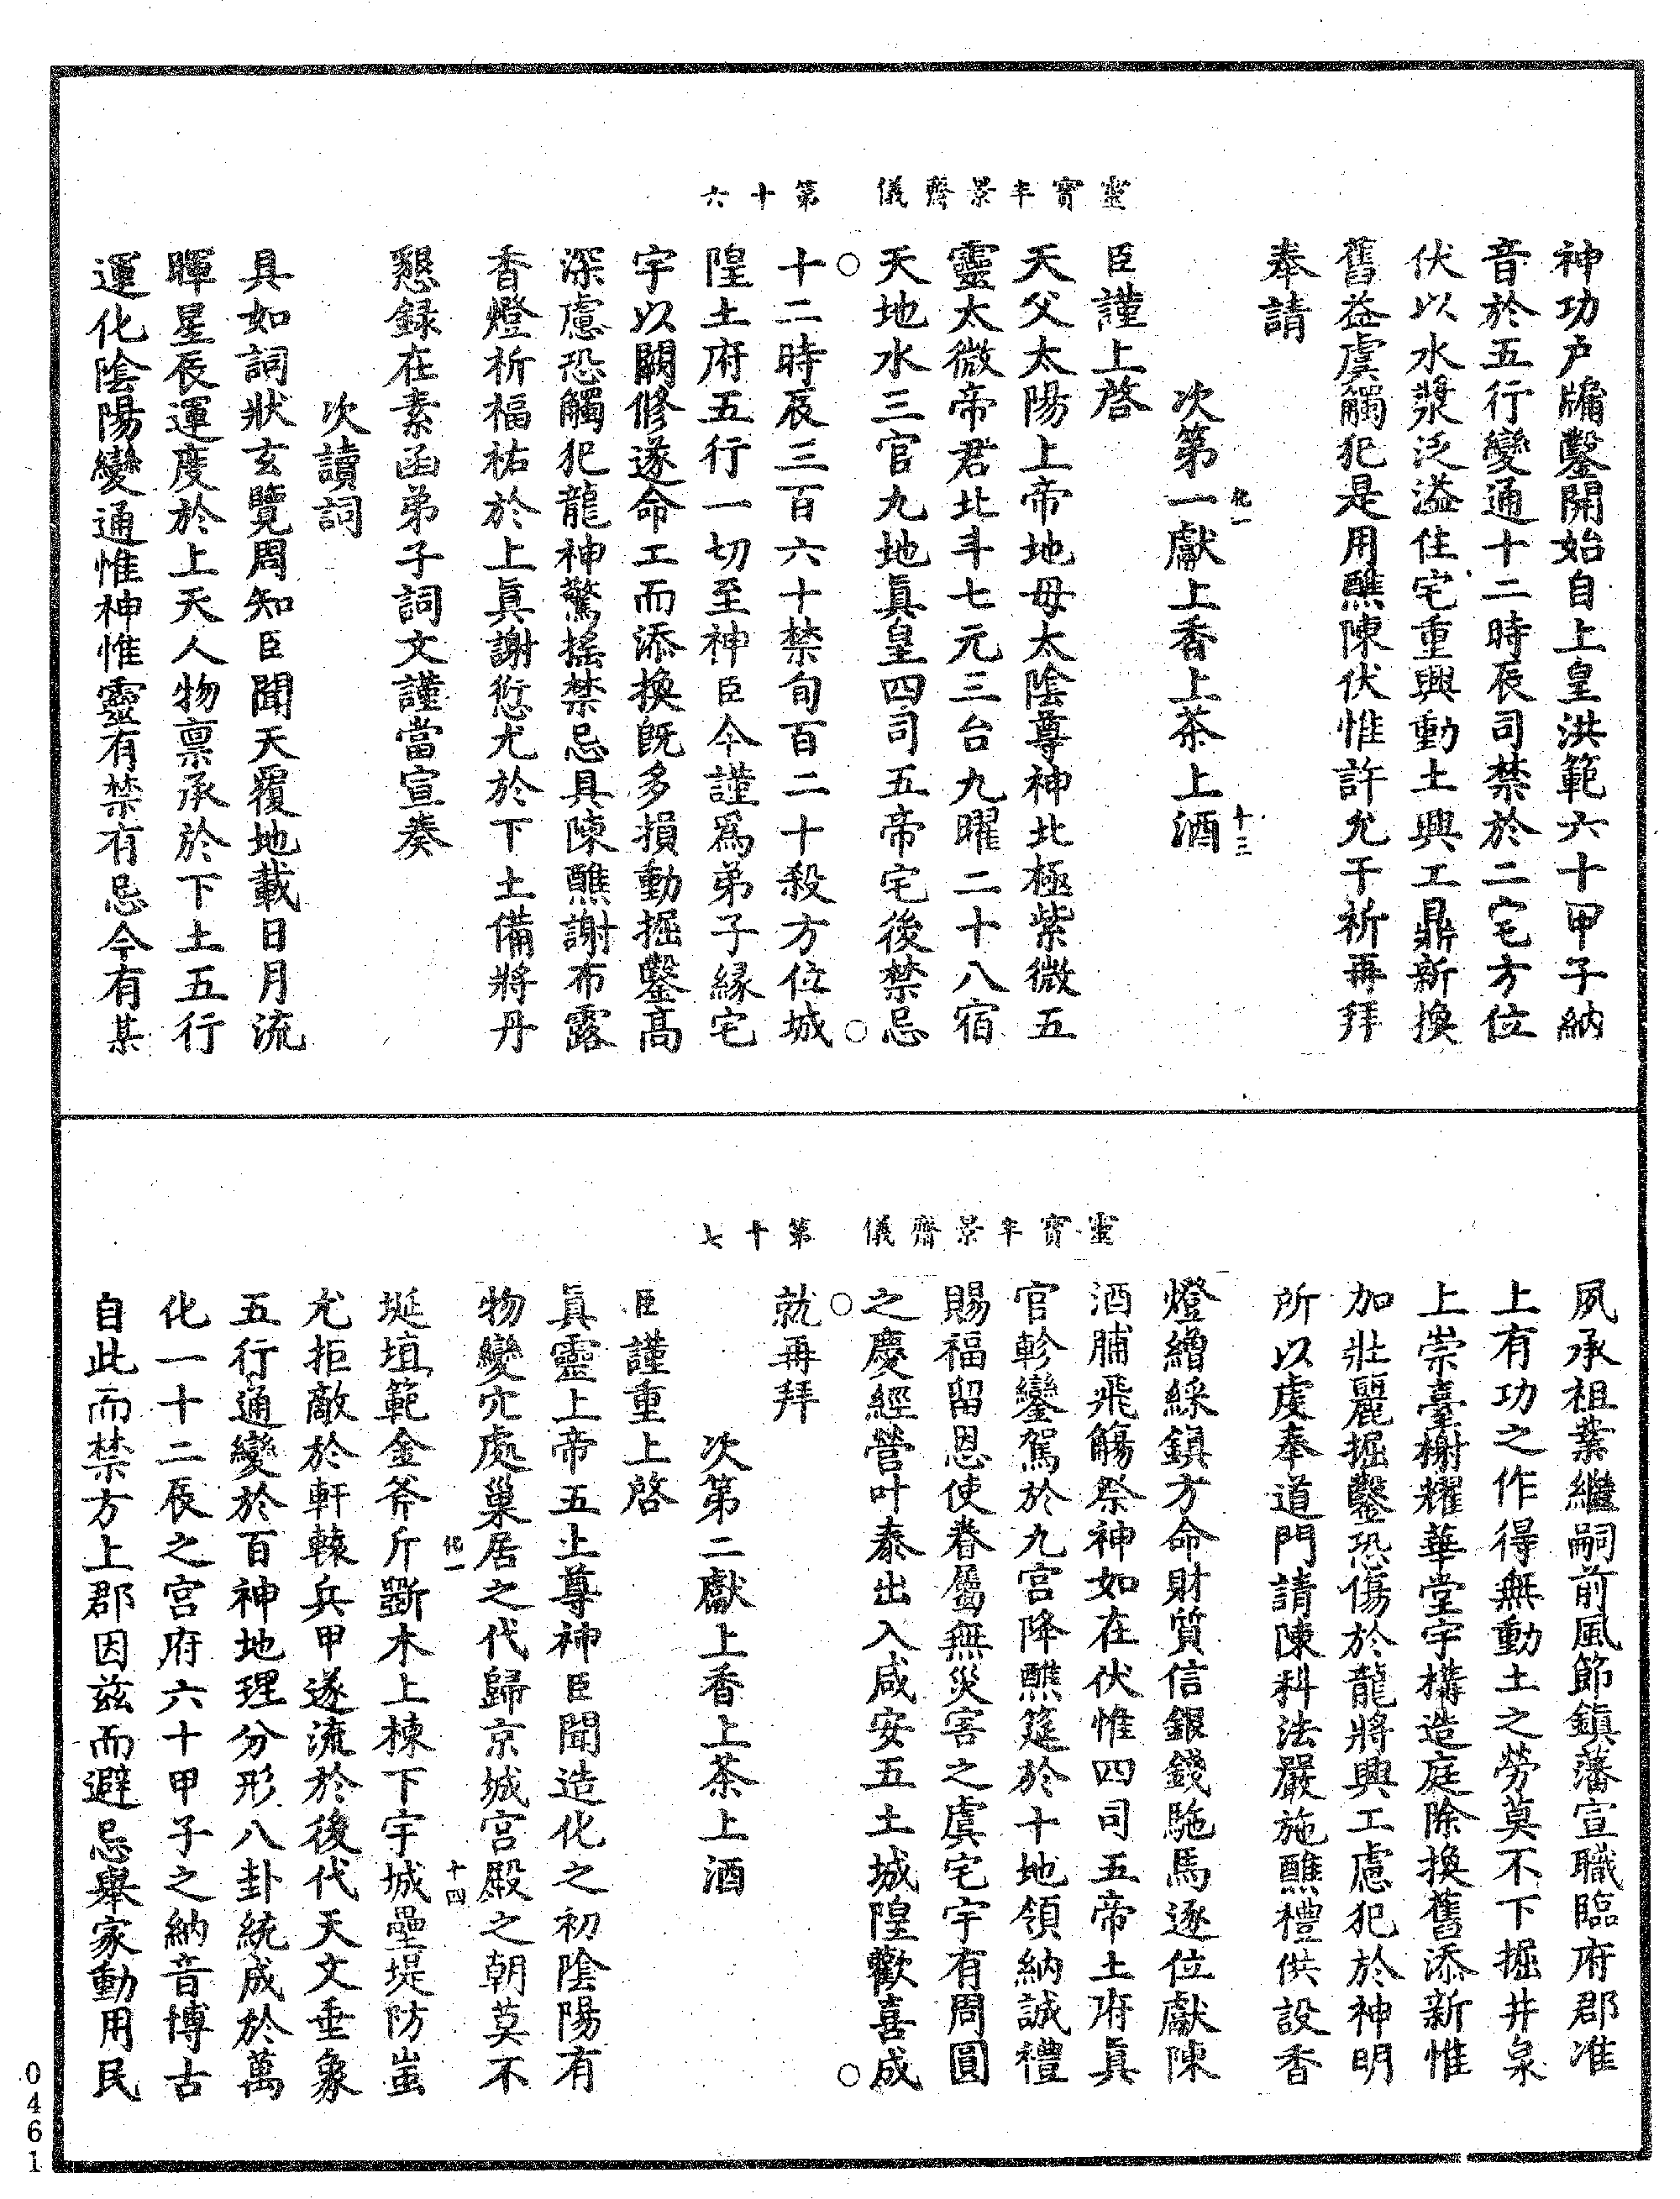 靈寶半景齋儀　第十六
神功户牖鑿開始自上皇洪範六十甲子納
音於五行變通十二時辰司禁於二宅方位
伏以水漿泛溢住宅重興動土興工鼎新換
舊益虞觸犯是用醮陳伏惟許允干祈再拜
奉請
化一
十三
次第一獻上香上茶上酒
臣謹上啓
天父太陽上帝地母太陰尊神北極紫微五
靈太微帝君北斗七元三台九曜二十八宿
天地水三官九地眞皇四司五帝宅後禁忌
十二時辰三百六十禁旬百二十殺方位城
隍土府五行一切至神臣今謹爲弟子緣宅
宇以闕修遂命工而添換既多損動掘鑿高
深慮恐觸犯龍神驚搖禁忌具陳醮謝布露
香燈祈福祐於上眞謝愆尤於下土備將丹
懇録在素函弟子詞文謹當宣奏
次讀詞
具如詞狀玄覽周知臣聞天覆地載日月流
暉星辰運度於上天人物禀承於下土五行
運化陰陽變通惟神惟靈有禁有忌今有某
靈寶半景齋儀　第十七
夙承祖業繼嗣前風節鎮藩宣職臨府郡准
上有功之作得無動土之勞莫不下掘井泉
上崇臺榭耀華堂宇構造庭除換舊添新惟
加壯麗掘鑿恐傷於龍將興工慮犯於神明
所以虔奉道門請陳科法嚴施醮禮供設香
燈繒綵鎮方命財質信銀錢駞馬逐位獻陳
酒脯飛觴祭神如在伏惟四司五帝土府眞
官軫鑾駕於九宮降醮筵於十地領納誠禮
賜福留恩使眷屬無災害之虞宅宇有周圓
之慶經營叶泰出入咸安五土城隍歡喜成
就再拜
次第二獻上香上茶上酒
臣謹重上啓
眞靈上帝五土尊神臣聞造化之初陰陽有
物變穴處巢居之代歸京城宮殿之朝莫不
化一
十四
埏埴範金斧斤斲木上棟下宇城壘堤防蚩
尤拒敵於軒轅兵甲遂流於後代天文垂象
五行通變於百神地理分形八卦統成於萬
化一十二辰之宮府六十甲子之納音博古
自此而禁方上郡因兹而避忌舉家動用民
0461